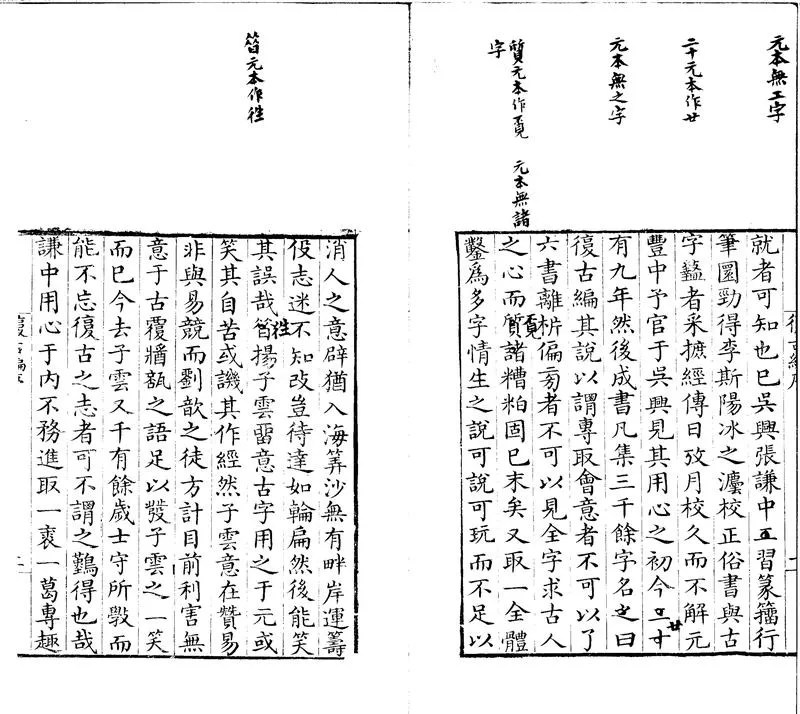 元本無工字
二十元本作廿
元本無之字
質元本作覓
字
元本無諸
就者可知也已吳興張謙中工習篆籒行
筆圓勁得李斯陽冰之灋校正俗書與古
字盭者采摭經傳日攷月校久而不解元
豐中予官于吳興見其用心之初今二十廿
有九年然後成書凡集三千餘字名之曰
復古編其說以謂專取會意者不可以了
六書離析偏旁者不可以見全字求古人
之心而質覓諸糟粕固已末矣又取一全體
鑿爲多字情生之說可說可玩而不足以
復古編序
二
昝元本作徃
消人之意辟猶入海筭沙無有畔岸運籌
役志迷不知改豈待達如輪扁然後能笑
其誤哉昝徃揚子雲留意古字用之于元或
笑其自苦或譏其作經然子雲意在贊易
非與易競而劉歆之徒方計目前利害無
意于古覆醬瓿之語足以發子雲之一笑
而已今去子雲又千有餘歲士守所斆而
能不忘復古之志者可不謂之難得也哉
謙中用心于內不務進取一裘一葛專趣
復古編序
二